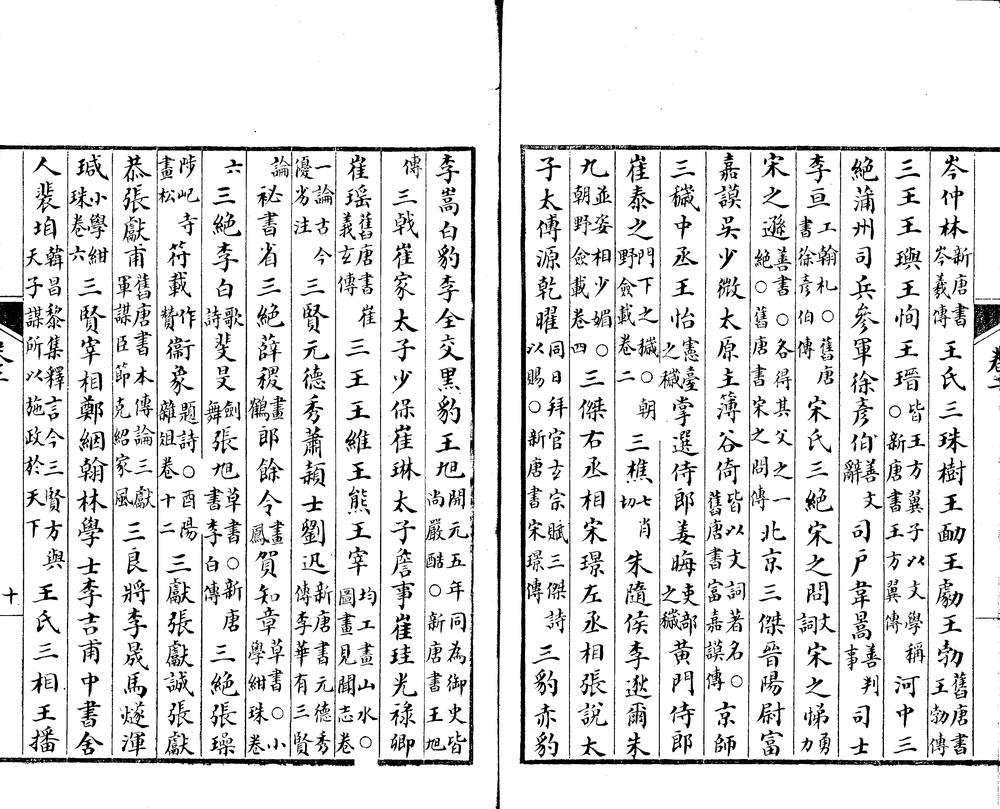 岑仲林新唐書岑羲傳王氏三珠樹王勔王勮王勃舊唐書王勃傳
三王王璵王恂王瑨皆王方翼子以文學稱○新唐書王方翼傳河中三
絕蒲州司兵參軍徐彥伯善文辭司戶韋暠善判事司士
李亘工翰札○舊唐書徐彥伯傳宋氏三絕宋之問文詞宋之悌勇力
宋之遜善書○各得其父之一絕○舊唐書宋之問傳北京三傑晉陽尉富
嘉謨吳少微太原主簿谷倚皆以文詞著名○舊唐書富嘉謨傳京師
三穢中丞王怡憲臺之穢掌選侍郎姜晦吏部之穢黃門侍郎
崔泰之門下之穢○朝野僉載卷二三樵七肖切朱隨侯李逖爾朱
九並姿相少媚○朝野僉載卷四三傑右丞相宋璟左丞相張說太
子太傅源乾曜同日拜官玄宗賦三傑詩以賜○新唐書宋璟傳三豹赤豹
李嵩白豹李全交黑豹王旭開元五年同為御史皆尚嚴酷○新唐書王旭
傳三戟崔家太子少保崔琳太子詹事崔珪光祿卿
崔瑶舊唐書崔義玄傳三王王維王熊王宰均工畫山水○圖畫見聞志卷
一論古今優劣注三賢元德秀蕭穎士劉迅新唐書元德秀傳李華有三賢
論秘書省三絕薛稷畫鶴郎餘令畫鳳賀知章草書○小學紺珠卷
六三絕李白歌詩斐旻劍舞張旭草書○新唐書李白傳三絕張璪
陟屺寺畫松符載作贊衞象題詩○酉陽雜俎卷十二三獻張獻誠張獻
恭張獻甫舊唐書本傳論三獻軍謀臣節克紹家風三良將李晟馬燧渾
瑊小學紺珠卷六三賢宰相鄭絪翰林學士李吉甫中書舍
人裴垍韓昌黎集釋言今三賢方與天子謀所以施政於天下王氏三相王播
十